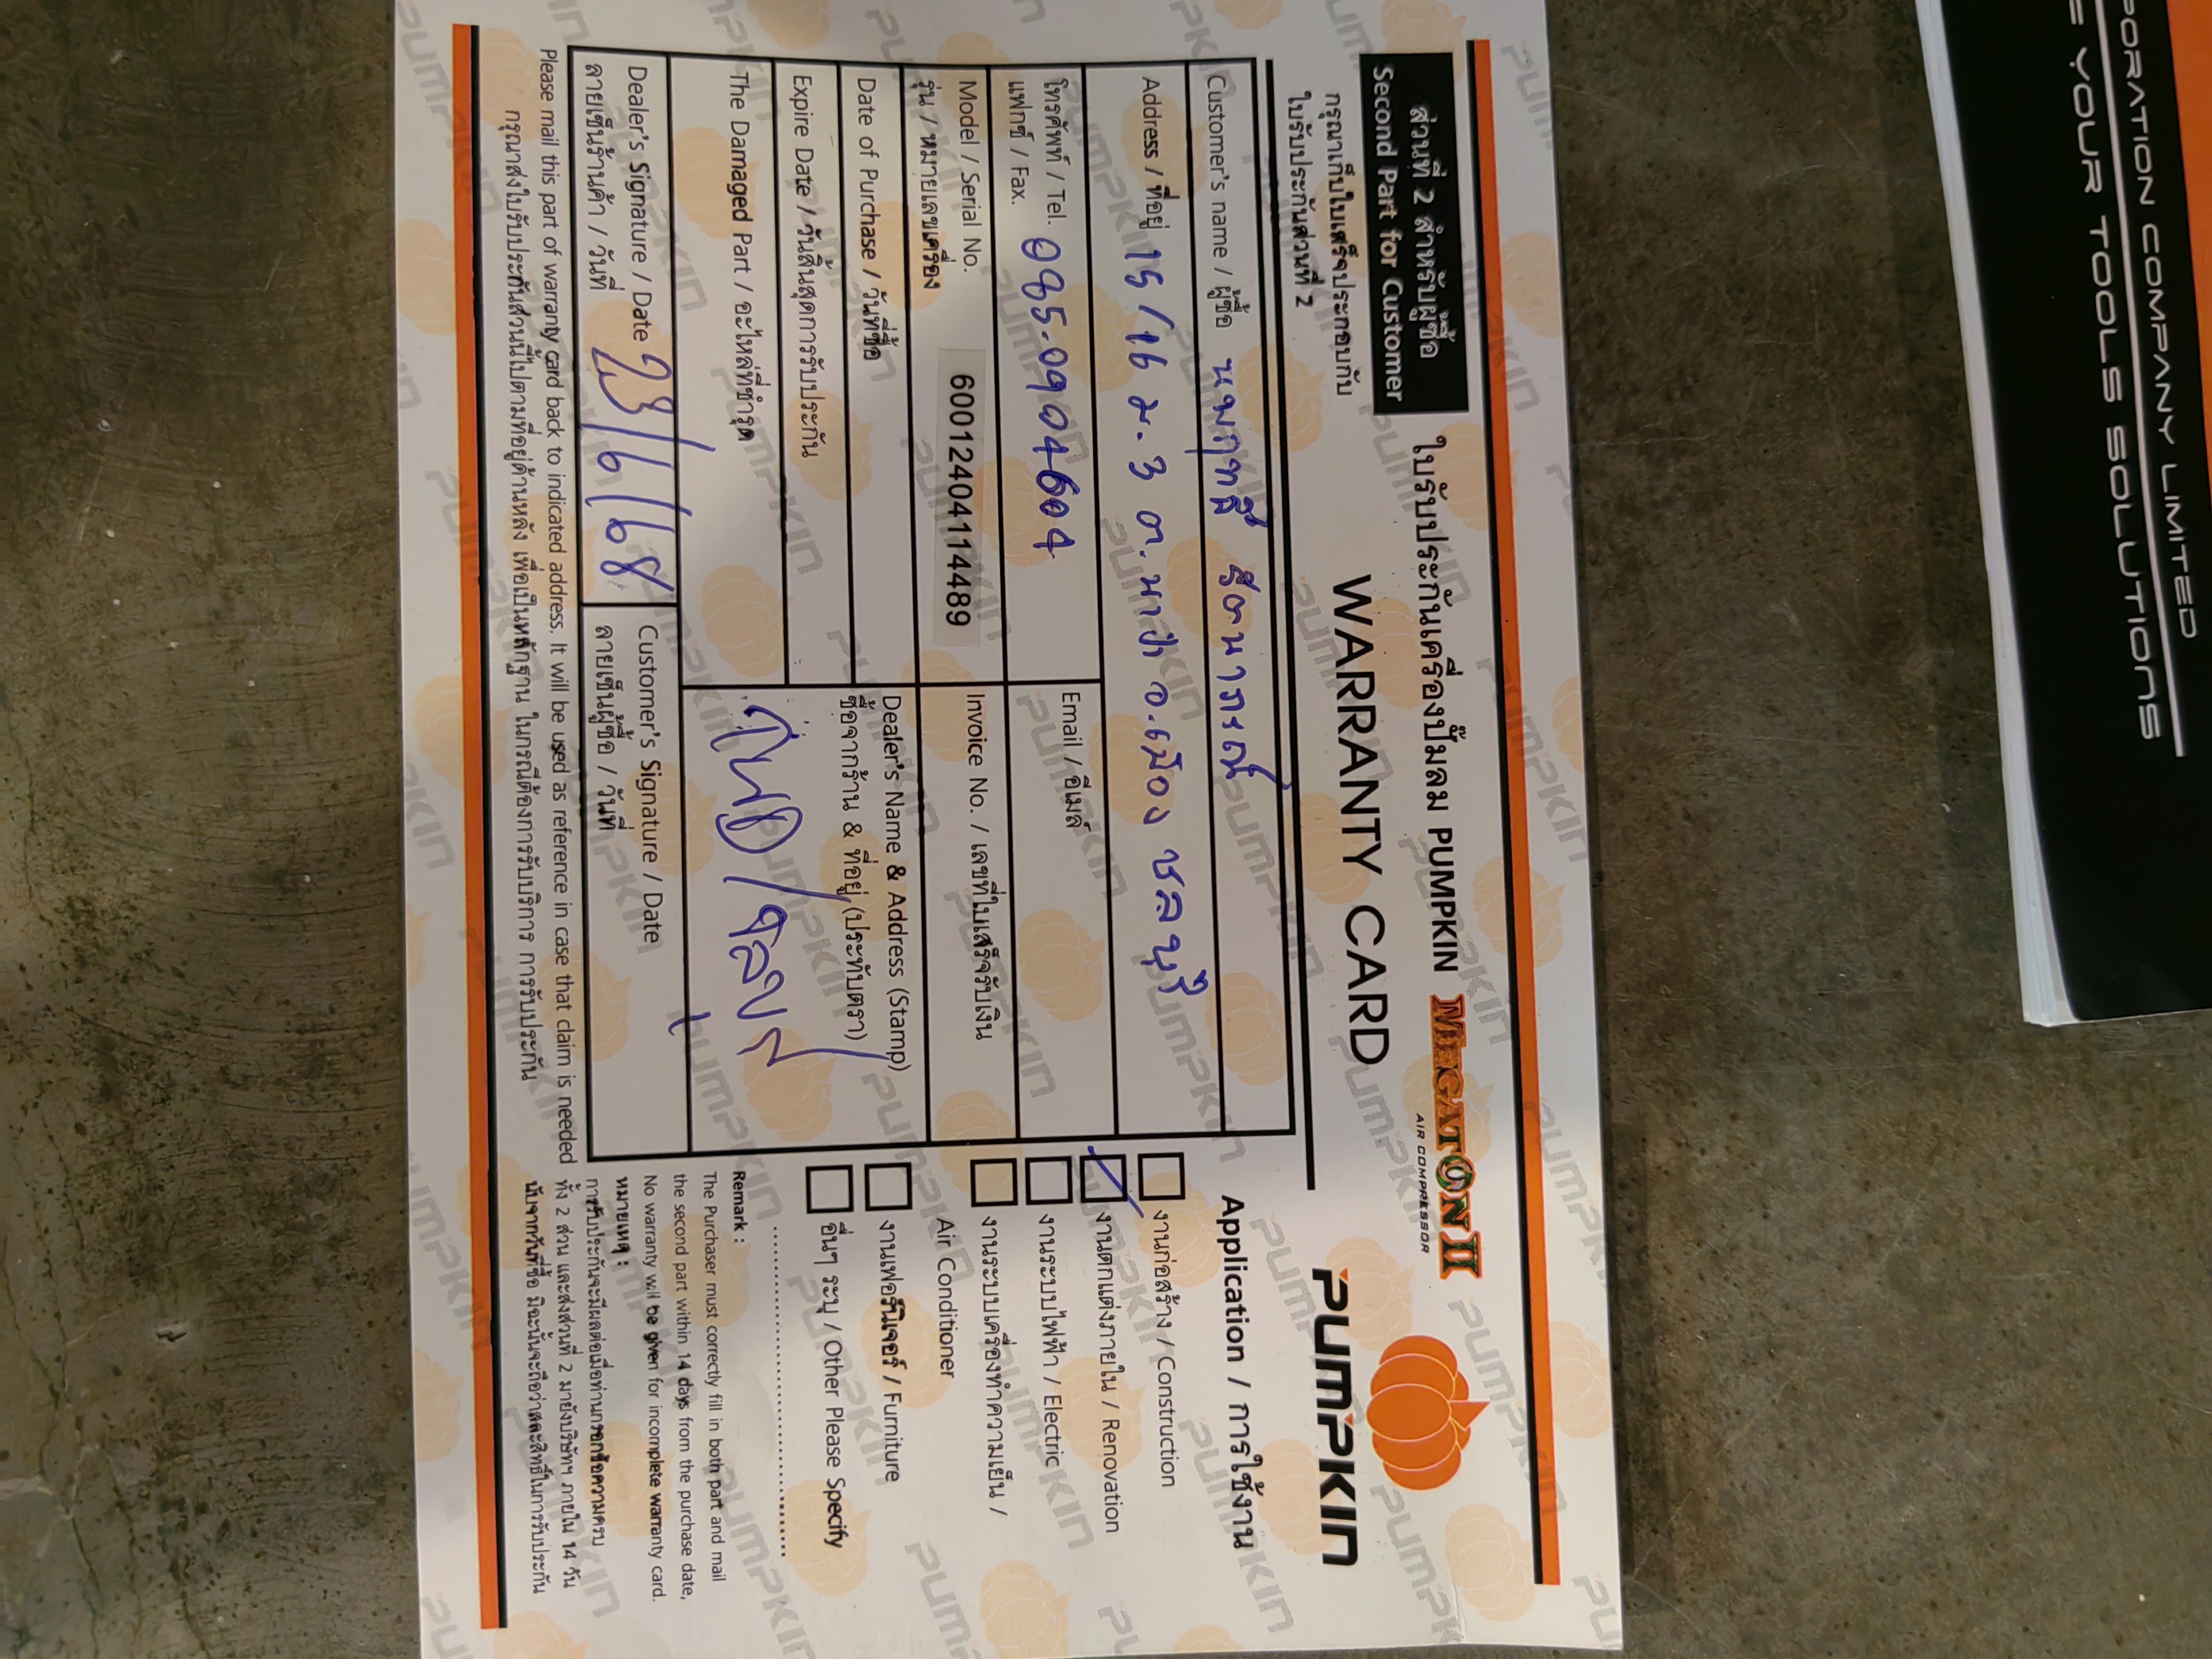 ส่วนที่ 2 สำหรับผู้ซื้อ
Second Part for Customer
ใบรับประกันเครื่องปั๊มลม PUMPKIN MEGATON II
AIR COMPRESSOR
กรุณาเก็บใบเสร็จประกอบกับ
ใบรับประกันส่วนที่ 2
WARRANTY CARD
PUMPKIN
Customer's name / ผู้ซื้อ
Address / ที่อยู่ 15/16 ม.3 ต.นาป่า อ.เมือง ชลบุรี
โทรศัพท์ / Tel.
แฟกซ์ / Fax.
Email / อีเมล์
Model / Serial No.
รุ่น / หมายเลขเครื่อง
60012404114489
Invoice No. / เลขที่ใบเสร็จรับเงิน
Date of Purchase / วันที่ซื้อ
Expire Date / วันสิ้นสุดการรับประกัน
Dealer's Name & Address (Stamp)
ซื้อจากร้าน & ที่อยู่ (ประทับตรา)
The Damaged Part / อะไหล่ที่ชำรุด
Dealer's Signature / Date
ลายเซ็นร้านค้า / วันที่
23/6/68
Customer's Signature / Date
ลายเซ็นผู้ซื้อ / วันที่
Please mail this part of warranty card back to indicated address. It will be used as reference in case that claim is needed
กรุณาส่งใบรับประกันส่วนนี้ไปตามที่อยู่ด้านหลัง เพื่อเป็นหลักฐาน ในกรณีต้องการรับบริการ การรับประกัน
Application / การใช้งาน
งานก่อสร้าง / Construction
งานตกแต่งภายใน / Renovation
งานระบบไฟฟ้า / Electric
งานระบบเครื่องทำความเย็น /
Air Conditioner
งานเฟอร์นิเจอร์ / Furniture
อื่นๆ ระบุ / Other Please Specify
Remark :
The Purchaser must correctly fill in both part and mail
the second part within 14 days from the purchase date,
No warranty will be given for incomplete warranty card.
หมายเหตุ :
การรับประกันจะมีผลต่อเมื่อท่านกรอกข้อความครบ
ทั้ง 2 ส่วน และส่งส่วนที่ 2 มายังบริษัทฯ ภายใน 14 วัน
นับจากวันที่ซื้อ มิฉะนั้นจะถือว่าสละสิทธิ์ในการรับประกัน
PORATION COMPANY LIMITED
E YOUR TOOLS SOLUTIONS